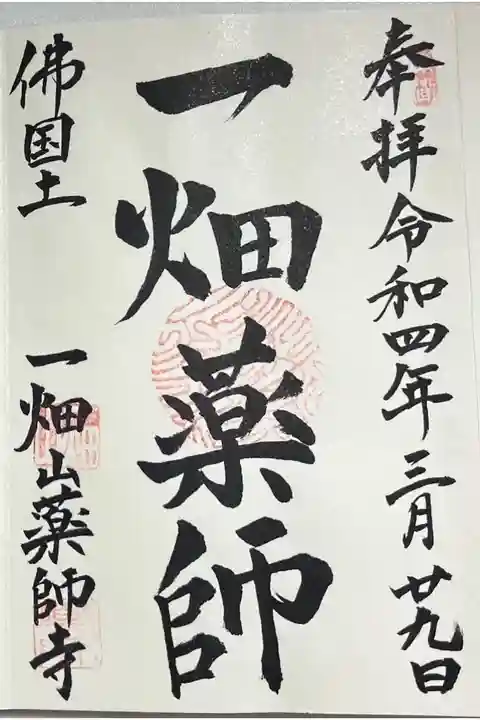 奉拝 令和四年三月廿九日
一畑薬師
佛国土
一畑山薬師寺